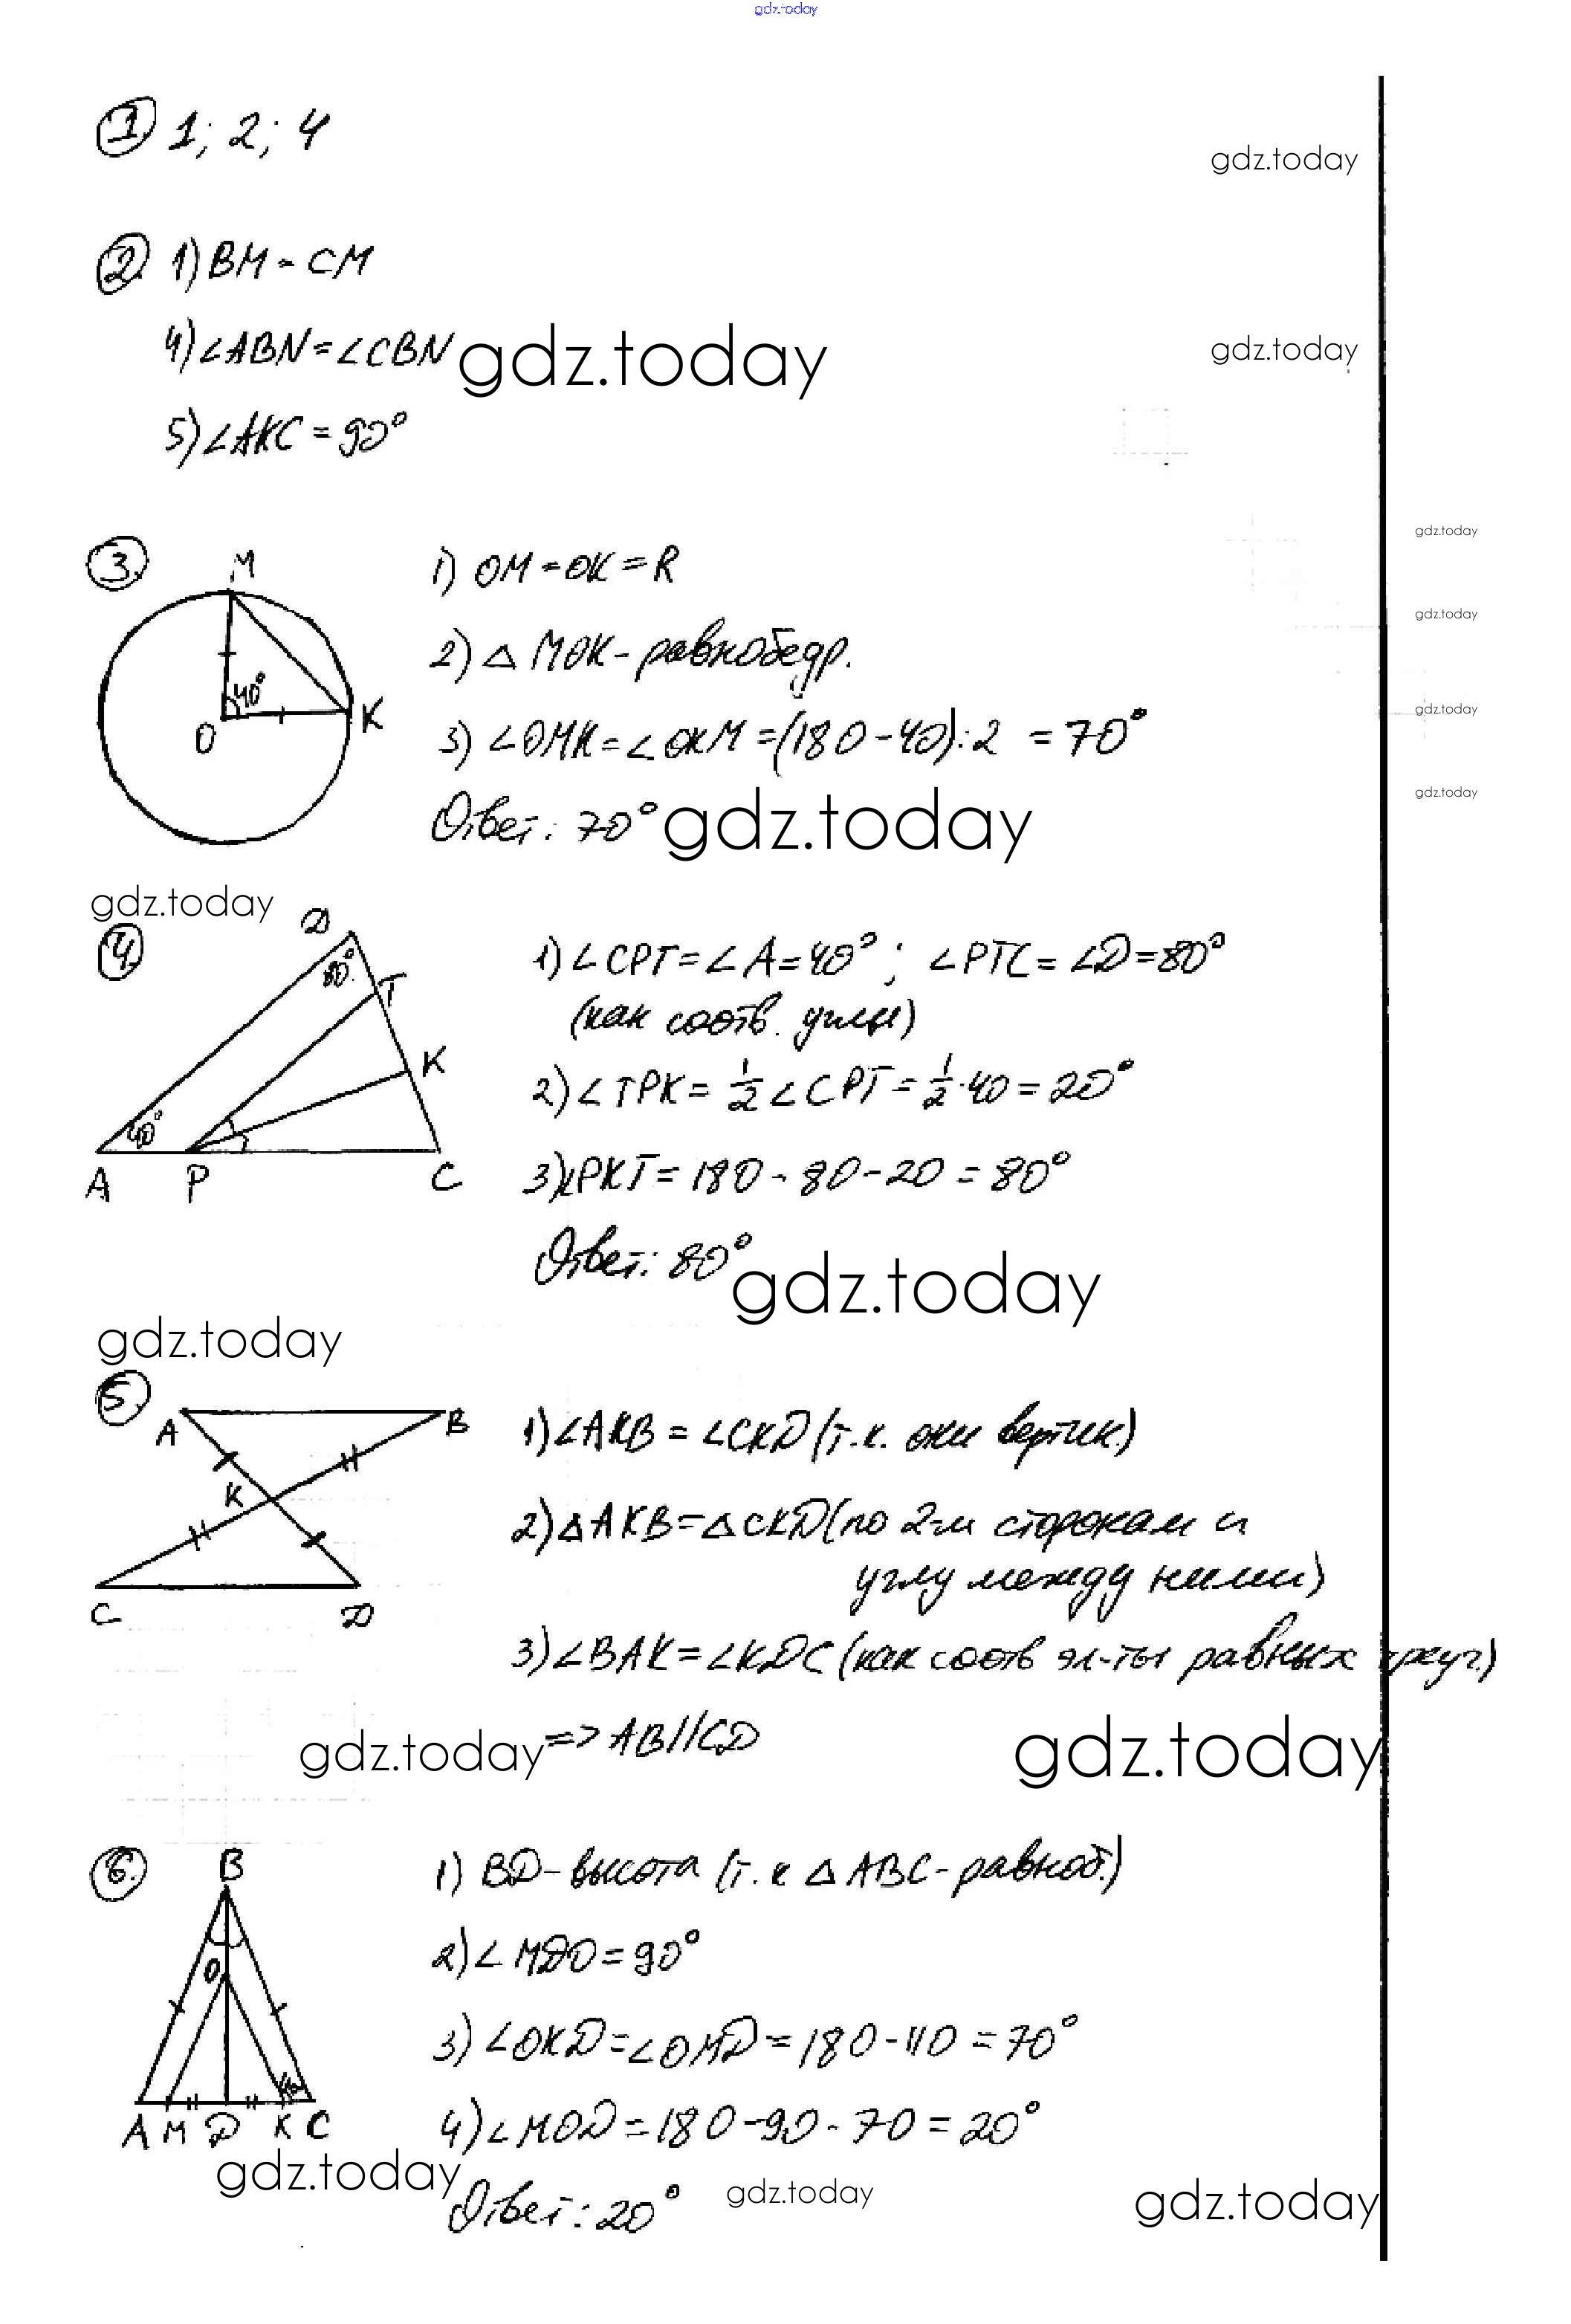 gdz.today
1. 1; 2; 4
gdz.today
2. 1) BM = CM
4) ∠ABN = ∠CBN
gdz.today
gdz.today
5) ∠AKC = 90°
gdz.today
3. M
1) OM = OK = R
gdz.today
2) △ MOK - равнобедр.
40°
O
K
gdz.today
3) ∠OMK = ∠OKM = (180 - 40) : 2 = 70°
gdz.today
Ответ: 70°
gdz.today
gdz.today
4. D
80°
T
K
40°
A P C
1) ∠CPT = ∠A = 40° ; ∠PTC = ∠D = 80°
(как соотв. углы)
2) ∠TPK = 1/2 ∠CPT = 1/2 · 40 = 20°
3) ∠PKT = 180 - 80 - 20 = 80°
Ответ: 80°
gdz.today
gdz.today
5. A B
K
C D
1) ∠AKB = ∠CKD (т.к. они вертик.)
2) △AKB = △CKD (по 2-м сторонам и
углу между ними)
3) ∠BAK = ∠KDC (как соотв эл-ты равных треуг.)
=> AB//CD
gdz.today
gdz.today
6. B
O
A M D K C
1) BD - высота (т.к △ ABC - равноб.)
2) ∠MDO = 90°
3) ∠OKD = ∠OMD = 180 - 110 = 70°
4) ∠MOD = 180 - 90 - 70 = 20°
gdz.today
Ответ: 20°
gdz.today
gdz.today